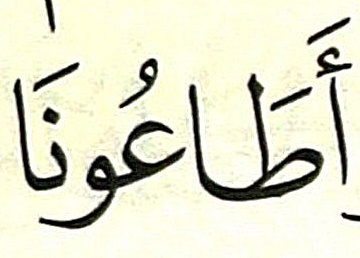 أَطَاعُونَا